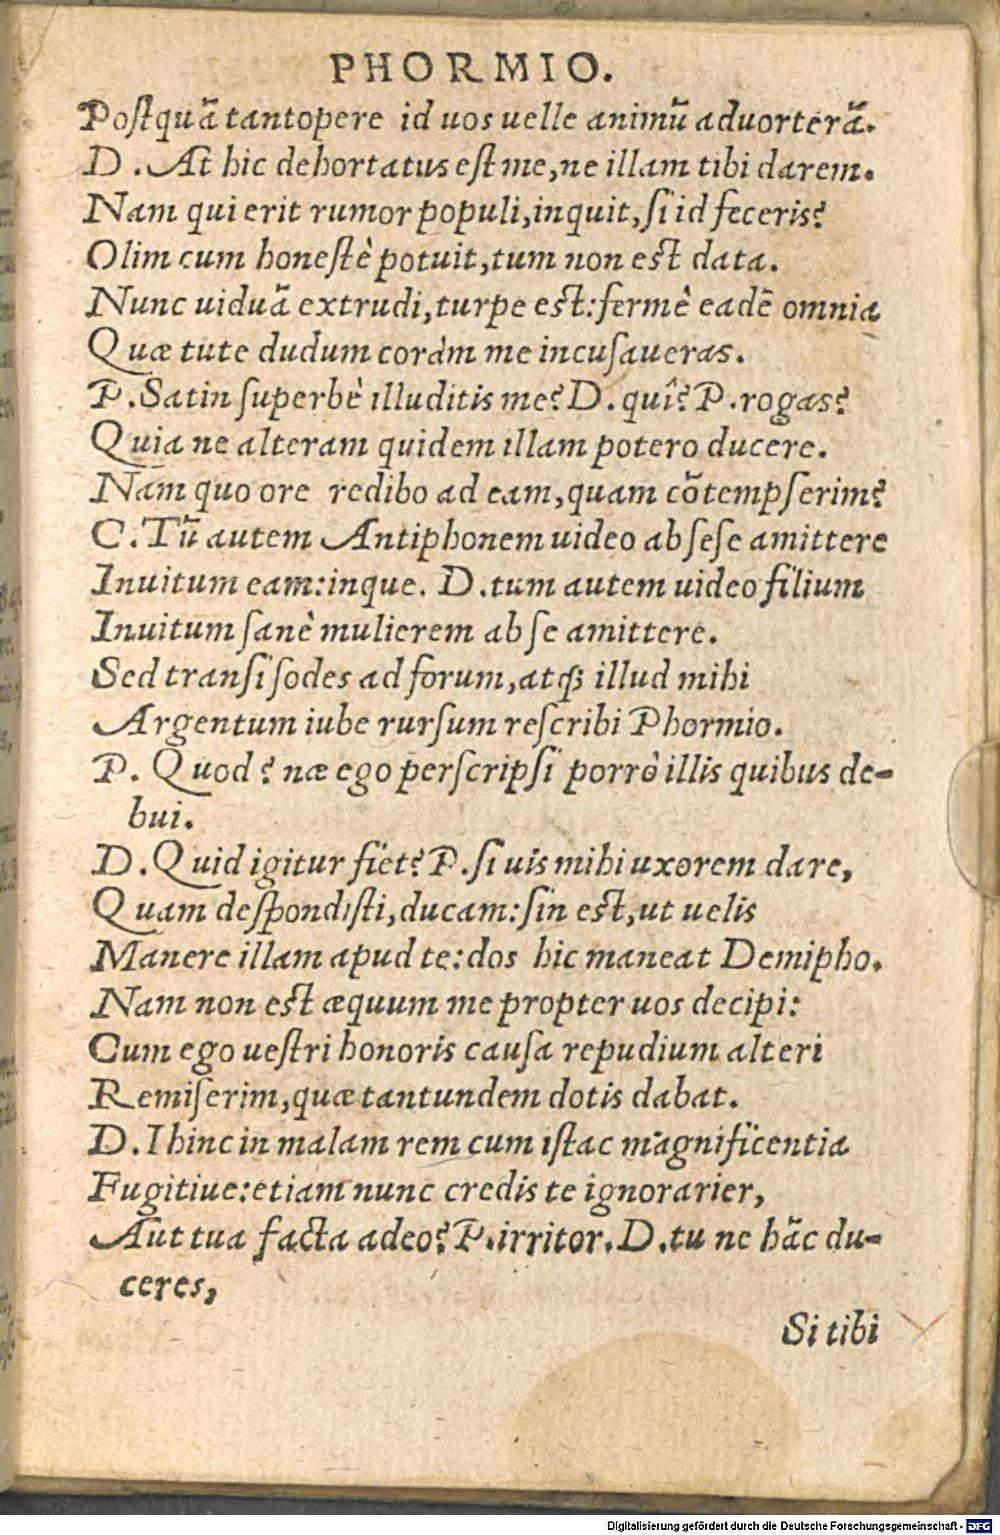 PHORMIO.
Poſtquã tantopere id uos uelle animũ aduorterã.
D. At hic dehortatus eſt me, ne illam tibi darem.
Nam qui erit rumor populi, inquit, ſi id feceris?
Olim cum honeſtè potuit, tum non eſt data.
Nunc uiduã extrudi, turpe eſt: fermè eadẽ omnia
Quæ tute dudum coràm me incuſaueras.
P. Satin ſuperbè illuditis me? D. quî? P. rogas?
Quia ne alteram quidem illam potero ducere.
Nam quo ore redibo ad eam, quam cõtempſerim?
C. Tũ autem Antiphonem uideo ab ſeſe amittere
Inuitum eam: inque. D. tum autem uideo filium
Inuitum ſanè mulierem ab ſe amittere.
Sed tranſi ſodes ad forum, atq́ꝫ illud mihi
Argentum iube rurſum reſcribi Phormio.
P. Quod? næ ego perſcripſi porrò illis quibus de-
bui.
D. Quid igitur fiet? P. ſi uis mihi uxorem dare,
Quam deſpondiſti, ducam: ſin eſt, ut uelis
Manere illam apud te: dos hic maneat Demipho.
Nam non eſt æquum me propter uos decipi:
Cum ego ueſtri honoris cauſa repudium alteri
Remiſerim, quæ tantundem dotis dabat.
D. I hinc in malam rem cum iſtac magnificentia
Fugitiue: etiam nunc credis te ignorarier,
Aut tua facta adeo? P. irritor. D. tu ne hãc du-
ceres,
Si tibi
Digitalisierung gefördert durch die Deutsche Forschungsgemeinschaft - DFG